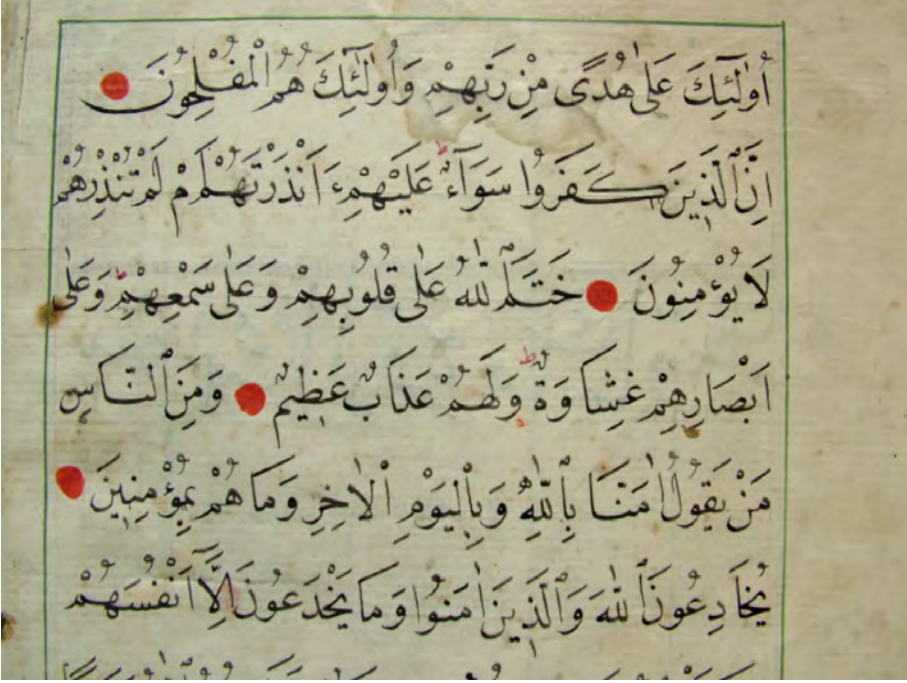 اُولٰٓئِكَ عَلٰى هُدًى مِنْ رَبِّهِمْ وَاُولٰٓئِكَ هُمُ الْمُفْلِحُونَ
اِنَّ الَّذِينَ كَفَرُوا سَوَآءٌ عَلَيْهِمْ ءَاَنْذَرْتَهُمْ اَمْ لَمْ تُنْذِرْهُمْ
لَا يُؤْمِنُونَ خَتَمَ اللّٰهُ عَلٰى قُلُوبِهِمْ وَعَلٰى سَمْعِهِمْ وَعَلٰى
اَبْصَارِهِمْ غِشَاوَةٌ وَلَهُمْ عَذَابٌ عَظِيمٌ وَمِنَ النَّاسِ
مَنْ يَقُولُ اٰمَنَّا بِاللّٰهِ وَبِالْيَوْمِ الْاٰخِرِ وَمَا هُمْ بِمُؤْمِنِينَ
يُخَادِعُونَ اللّٰهَ وَالَّذِينَ اٰمَنُوا وَمَا يَخْدَعُونَ اِلَّٓا اَنْفُسَهُمْ